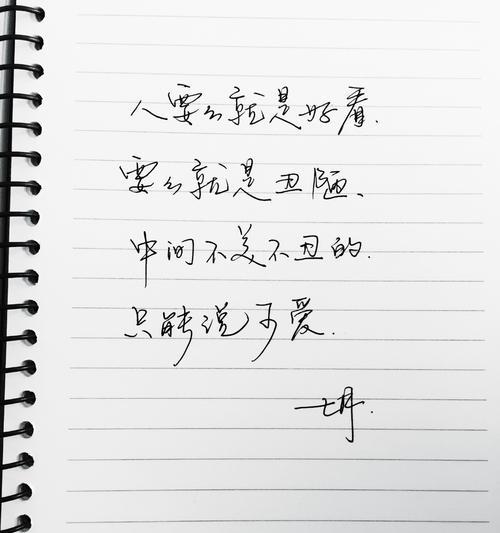 人要么就是好看.
要么就是丑陋、
中间不美不丑的.
只能说可爱.
七月.